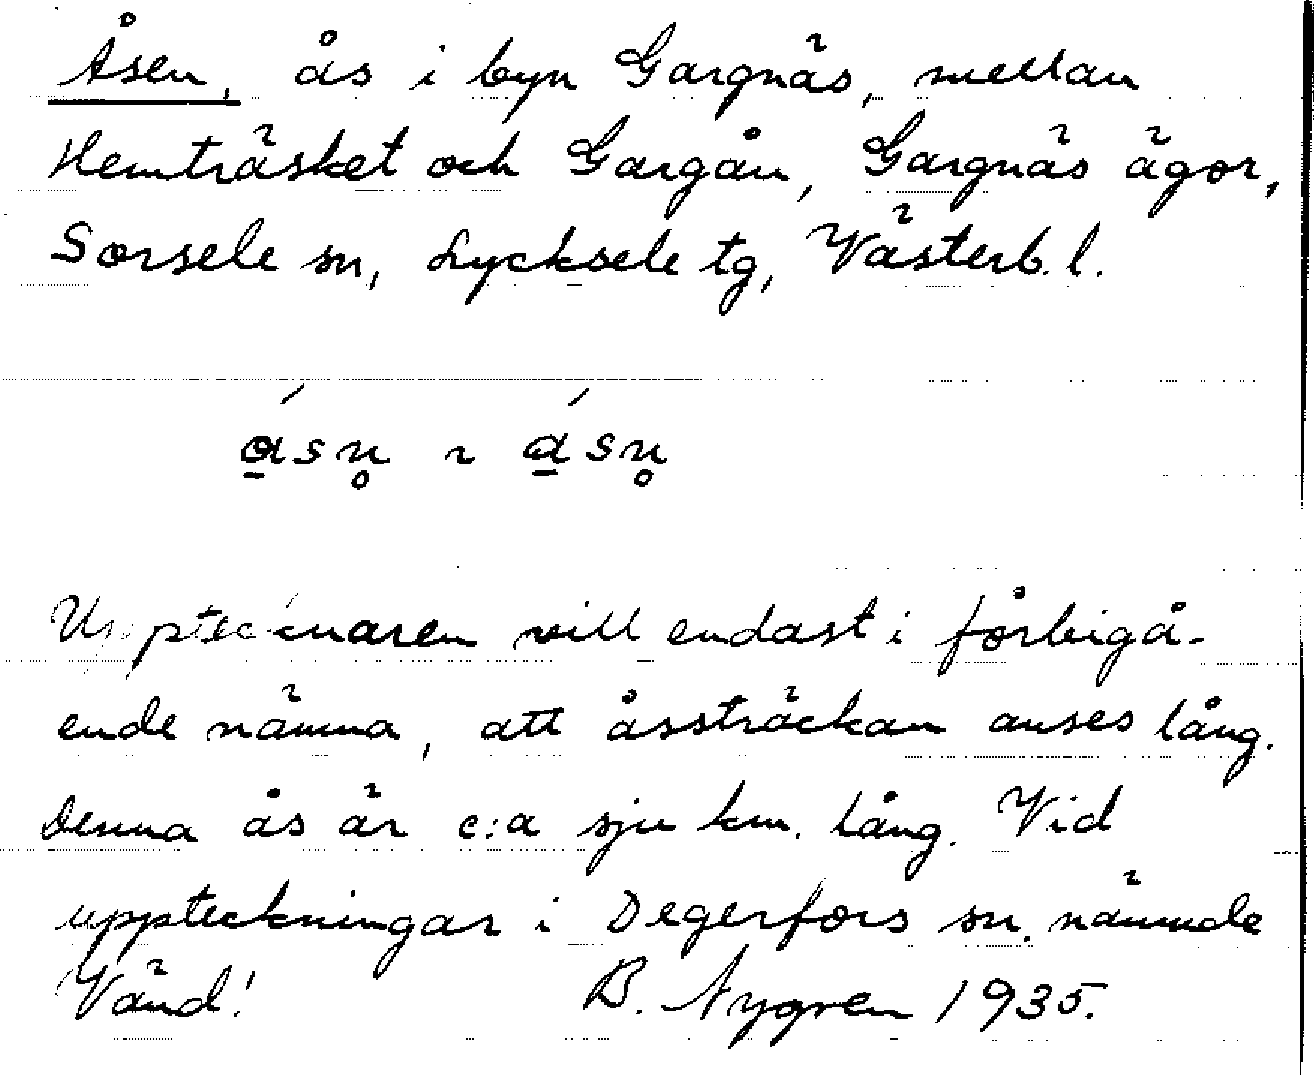 Åsen, ås i byn Gargnäs, mellan
Hemträsket och Gargån, Gargnäs ägor,
Sorsele sn, Lycksele tg, Västerb. l.
á̱sn̥ ~ á̱sn̥
Upptecknaren vill endast i förbigå-
ende nämna, att åssträckan anses lång.
Denna ås är c:a sju km. lång. Vid
uppteckningar i Degerfors sn. nämnde
Vänd! B. Nygren 1935.